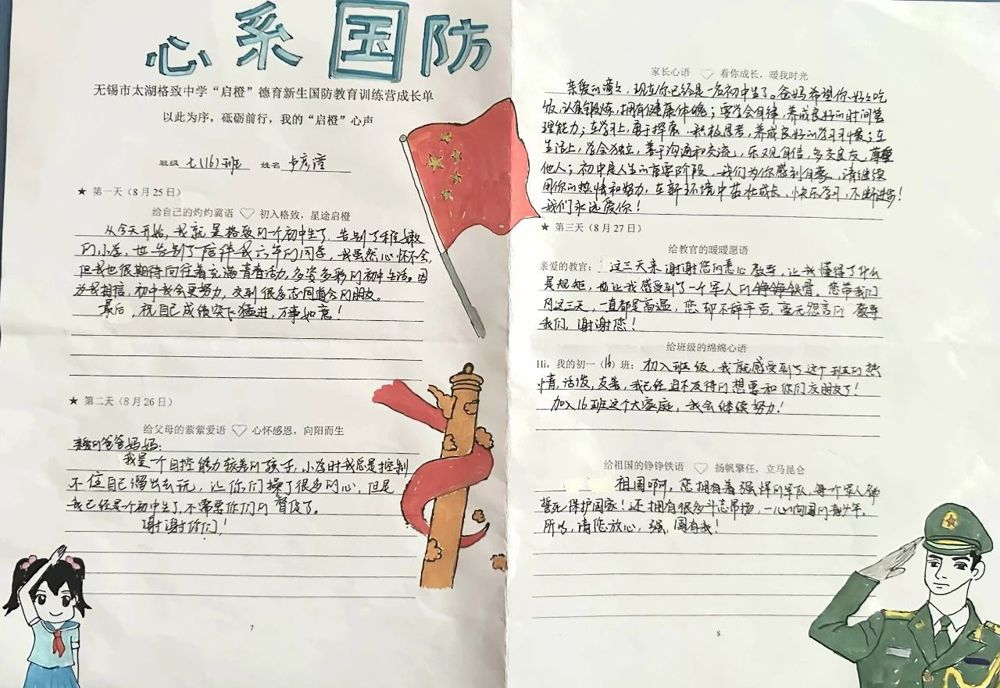 心系国防
无锡市太湖格致中学“启橙”德育新生国防教育训练营成长单
以此为序，砥砺前行，我的“启橙”心声
班级 七(16)班 姓名
★ 第一天（8月25日）
给自己的灼灼冀语 初入格致，星途启橙
从今天开始，我就是格致的一个初中生了，告别了稚嫩
的小学，也告别了陪伴我六年的同学，我虽然心怀不舍，
但我也很期待向往着充满青春活力、多姿多彩的初中生活。因
为我相信，初中我会更努力，交到很多志同道合的朋友。
最后，祝自己成绩突飞猛进，万事如意！
★ 第二天（8月26日）
给父母的萦萦爱语 心怀感恩，向阳而生
亲爱的爸爸妈妈：
我是一个自控能力较差的孩子，小学时我总是控制
不住自己溜出去玩，让你们操了很多的心，但是
我已经是个初中生了，不需要你们的督促了。
谢谢你们！
7
家长心语 看你成长，暖我时光
亲爱的，现在你已经是一名初中生了。爸妈希望你：好好吃
饭，认真锻炼，拥有健康体魄；要学会自律，养成良好的时间管
理能力；在学习上，勇于探索，积极思考，养成良好的学习习惯；在
生活上，学会独立，善于沟通和交流，乐观自信，多交良友，尊重
他人；初中是人生的重要阶段，我们为你感到自豪，请继续
用你的热情和努力，在新环境中茁壮成长，快乐学习，不断进步！
我们永远爱你！
★ 第三天（8月27日）
给教官的暖暖愿语
亲爱的教官： 这三天来谢谢您的悉心教导，让我懂得了什么
是规矩，也让我感受到了一个军人的铮铮铁骨。您带我们
的这三天，一直都是高温，您却不辞辛劳、毫无怨言的教导
我们，谢谢您！
给班级的绵绵心语
Hi，我的初一（16）班： 初入班级，我就感受到了这个班的热
情，活泼，友善，我已经迫不及待的想要和你们交朋友了！
加入16班这个大家庭，我会继续努力！
给祖国的铮铮铁语 扬帆擎任，立马昆仑
祖国啊，您拥有着强悍的军队，每个军人都
誓死保护国家！还拥有很多斗志昂扬，一心向国的青少年，
所以，请您放心，强国有我！
8